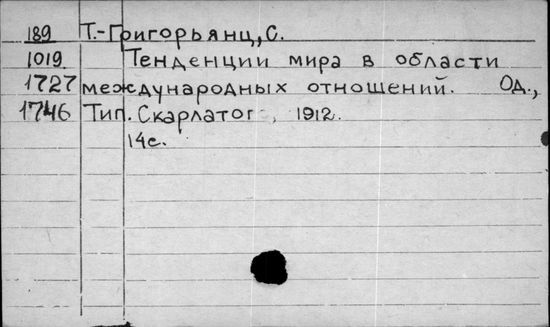 189 Т.-Григорьянц, С.
1019 Тенденции мира в области
1727 международных отношений. Од.,
1746 Тип. Скарлато, 1912.
14с.